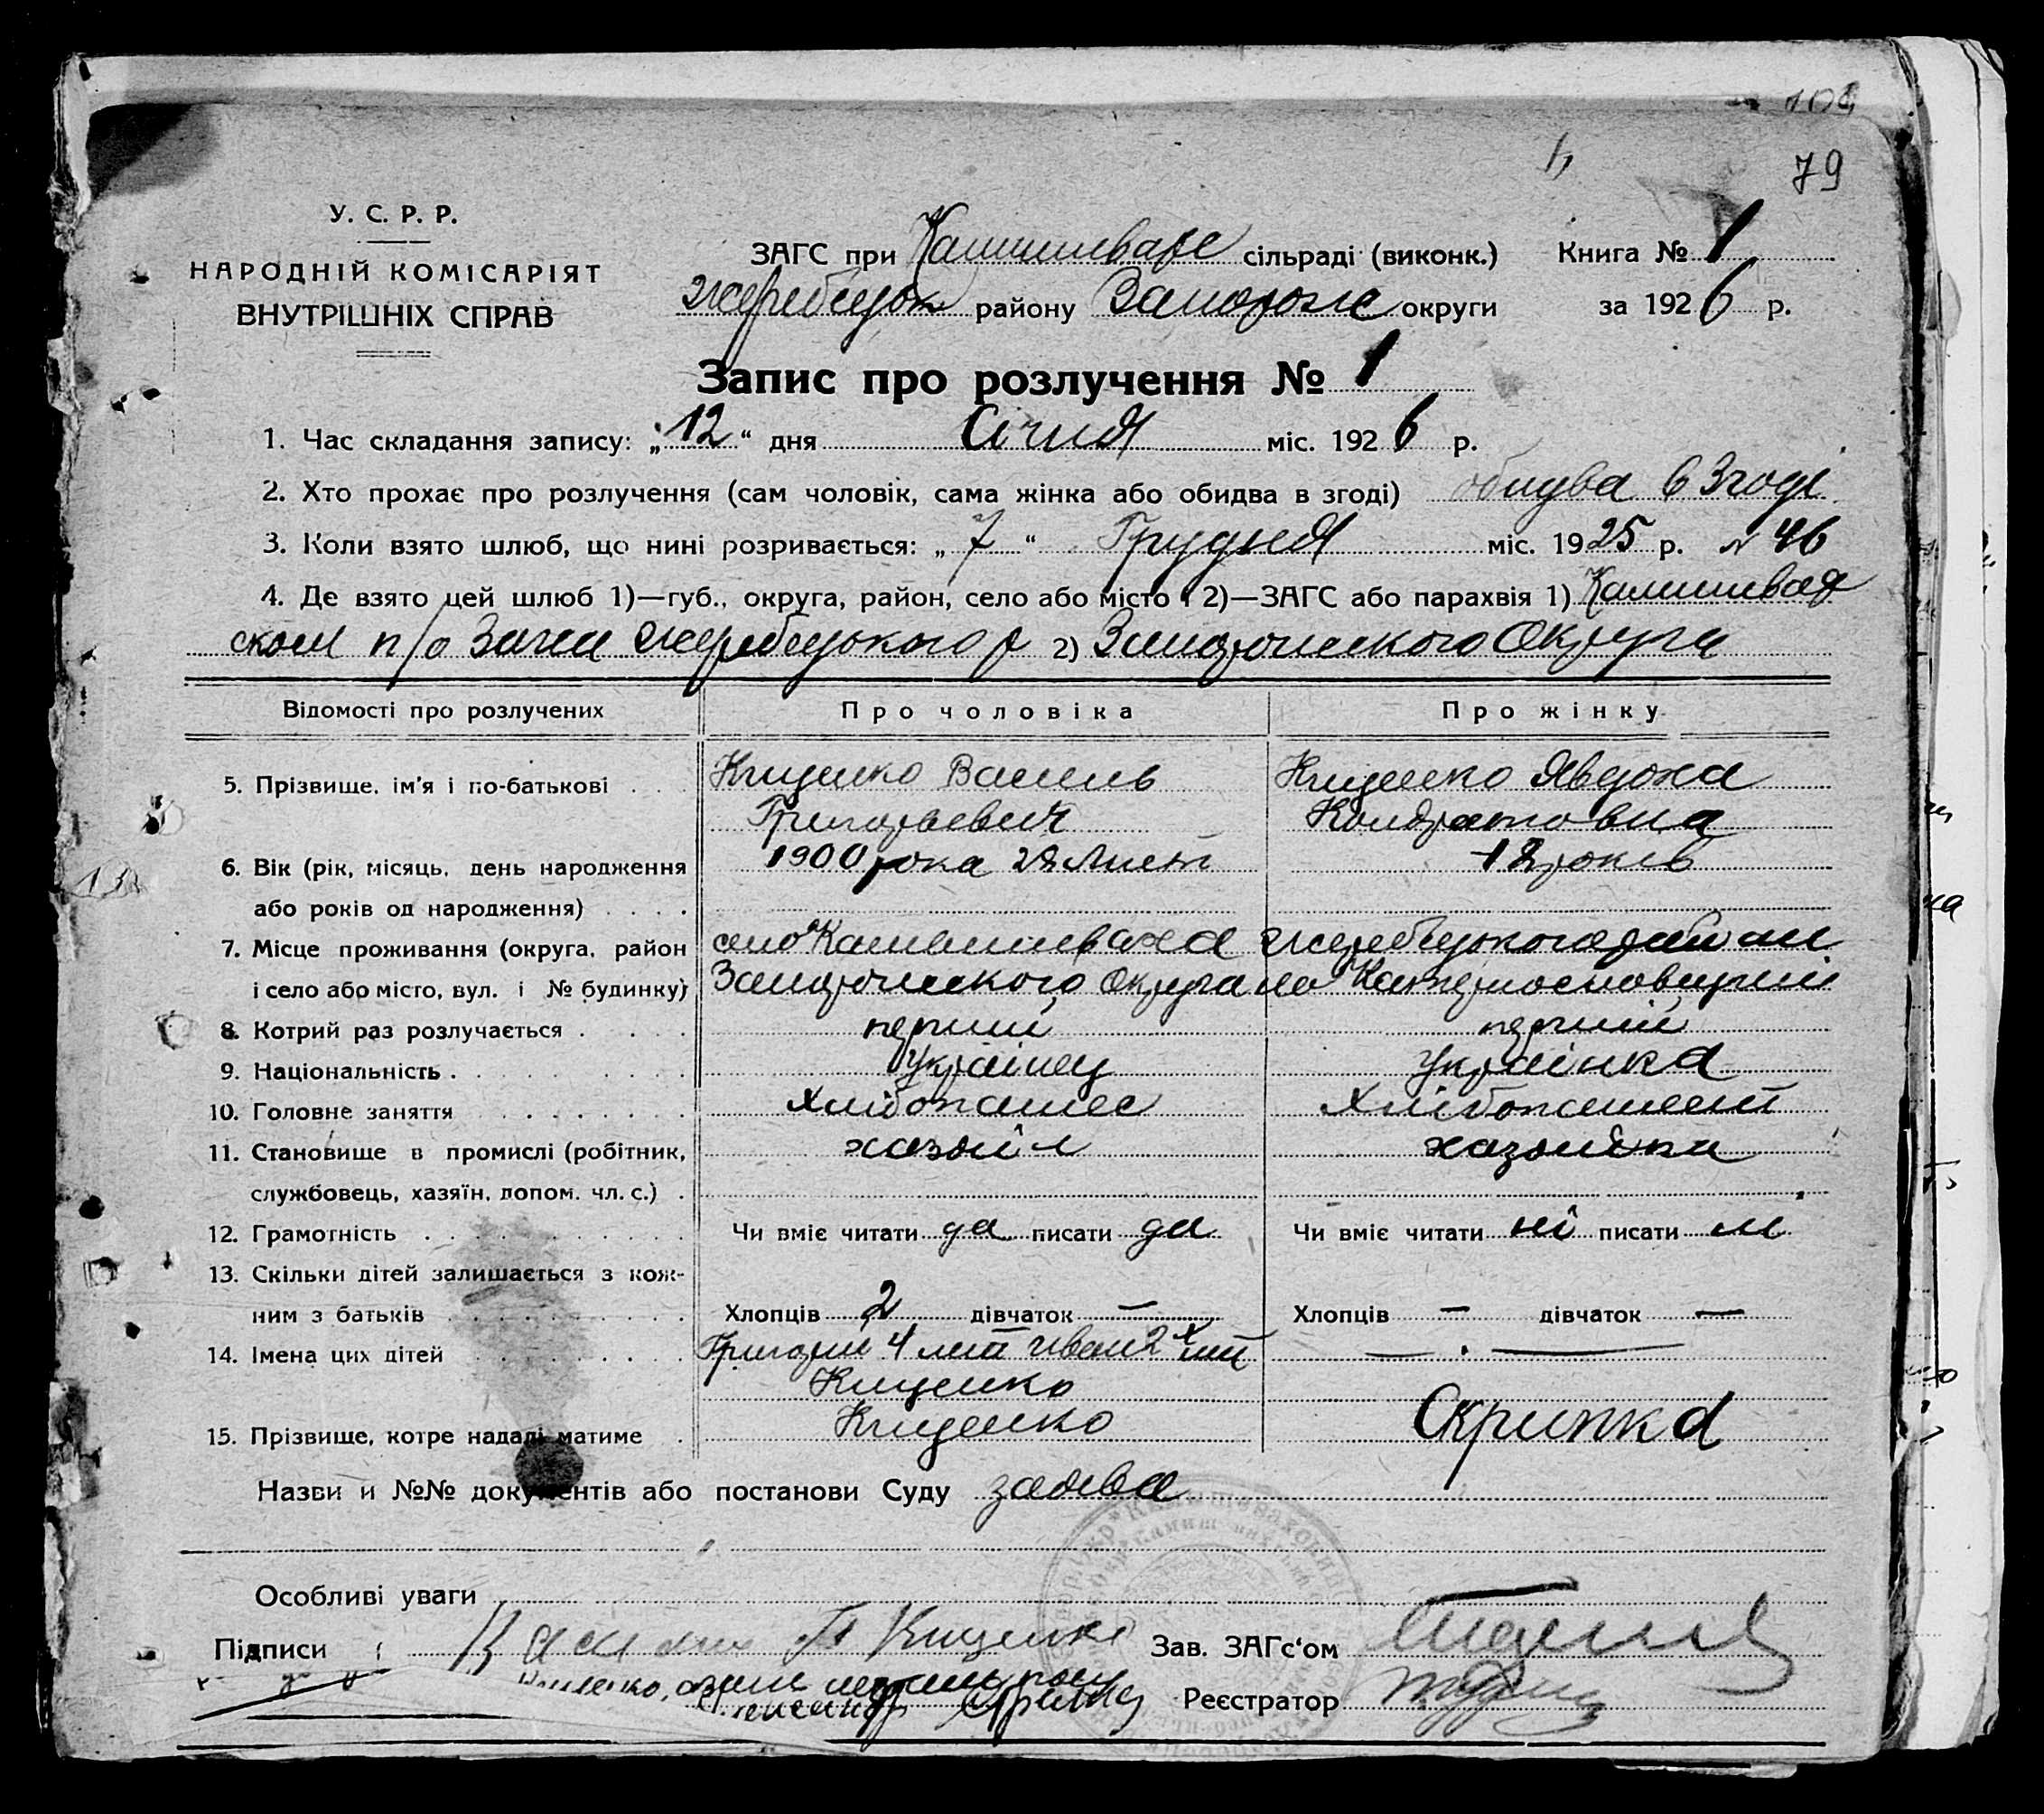 79
У. С. Р. Р.
НАРОДНІЙ КОМІСАРІЯТ
ВНУТРІШНІХ СПРАВ
ЗАГС при Камишевахс сільраді (виконк.) Книга № 1
Жеребецьк району Запорожс округи за 1926 р.
Запис про розлучення № 1
1. Час складання запису: „12“ дня Січня міс. 1926 р.
2. Хто прохає про розлучення (сам чоловік, сама жінка або обидва в згоді) обидва в Згоді
3. Коли взято шлюб, що нині розривається: „7“ Грудня міс. 1925 р. № 46
4. Де взято цей шлюб 1)—губ., округа, район, село або місто і 2)—ЗАГС або парахвія 1) Камишевах
ском п/о Загси Жеребецького р 2) Запорожского Округа
Відомості про розлучених Про чоловіка Про жінку
5. Прізвище, ім'я і по-батькові Кищенко Василь Кищенко Явдоха
Григорьевич Кондратовна
6. Вік (рік, місяць, день народження 1900 рока 28 Лист 18 років
або років од народження)
7. Місце проживання (округа, район село Камышеваха Жеребецького району
і село або місто, вул. і № будинку) Запорожского Округа
8. Котрий раз розлучається перший перший
9. Національність Українец Українка
10. Головне заняття Хлібопашес Хлібопашест
11. Становище в промислі (робітник, хазяін хазяйка
службовець, хазяїн, допом. чл. с.)
12. Грамотність Чи вміє читати да писати да Чи вміє читати ні писати ні
13. Скільки дітей залишається з кож-
ним з батьків Хлопців 2 дівчаток — Хлопців — дівчаток —
14. Імена цих дітей Григорий 4 лет Иван 2х лет — . —
Кищенко
15. Прізвище, котре надалі матиме Кищенко Скрипка
Назви и №№ документів або постанови Суду заява
Особливі уваги
Підписи Василь Г Кищенко Зав. ЗАГс'ом
Реєстратор